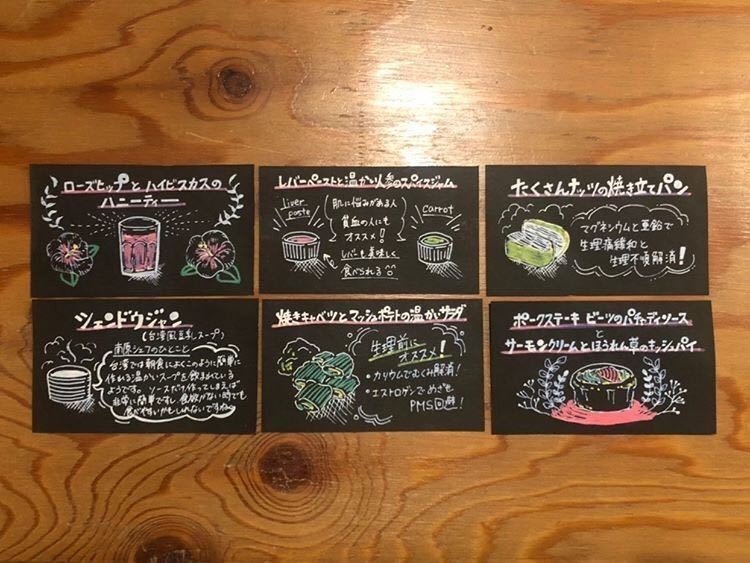 ローズヒップとハイビスカスの
ハニーティー
レバーペーストと温かい人参のスパイスジャム
liver
paste
肌に悩みがある人
貧血の人にも
オススメ!
レバーも美味しく
食べられる
carrot
たくさんナッツの焼き立てパン
マグネシウムと亜鉛で
生理痛緩和と
生理不順解消!
シェンドウジャン
(台湾風豆乳スープ)
南原シェフのひとこと
台湾では朝食によくこのように簡単に
作れる温かいスープを飲まれている
ようです。ソースだけ作ってしまえば
非常に簡単ですし、食欲がない時でも
食べやすいかもしれないですね。
焼きキャベツとマッシュポテトの温かいサラダ
生理前に
オススメ!
・カリウムでむくみ解消!
・エストロゲンでめざせ
PMS回避!
ポークステーキ ビーツのバルサミコソース
と
サーモンクリームとほうれん草のキッシュパイ